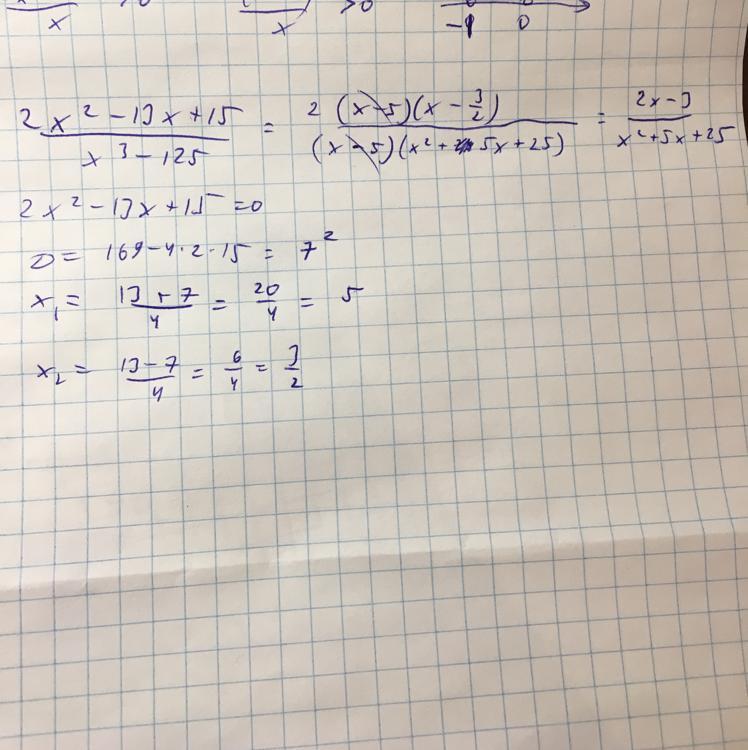 x x >0 -1 0
2x² - 13x + 15 / x³ - 125 = 2(x - 5)(x - 3/2) / (x - 5)(x² + 5x + 25) = 2x - 3 / x² + 5x + 25
2x² - 13x + 15 = 0
D = 169 - 4·2·15 = 7²
x₁ = 13 + 7 / 4 = 20/4 = 5
x₂ = 13 - 7 / 4 = 6/4 = 3/2